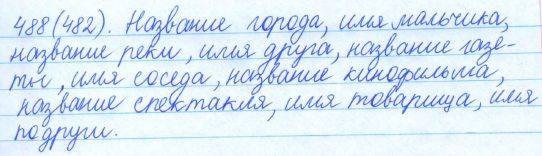 488(482). Название города, имя мальчика,
название реки, имя друга, название газе-
ты, имя соседа, название кинофильма,
название спектакля, имя товарища, имя
подруги.